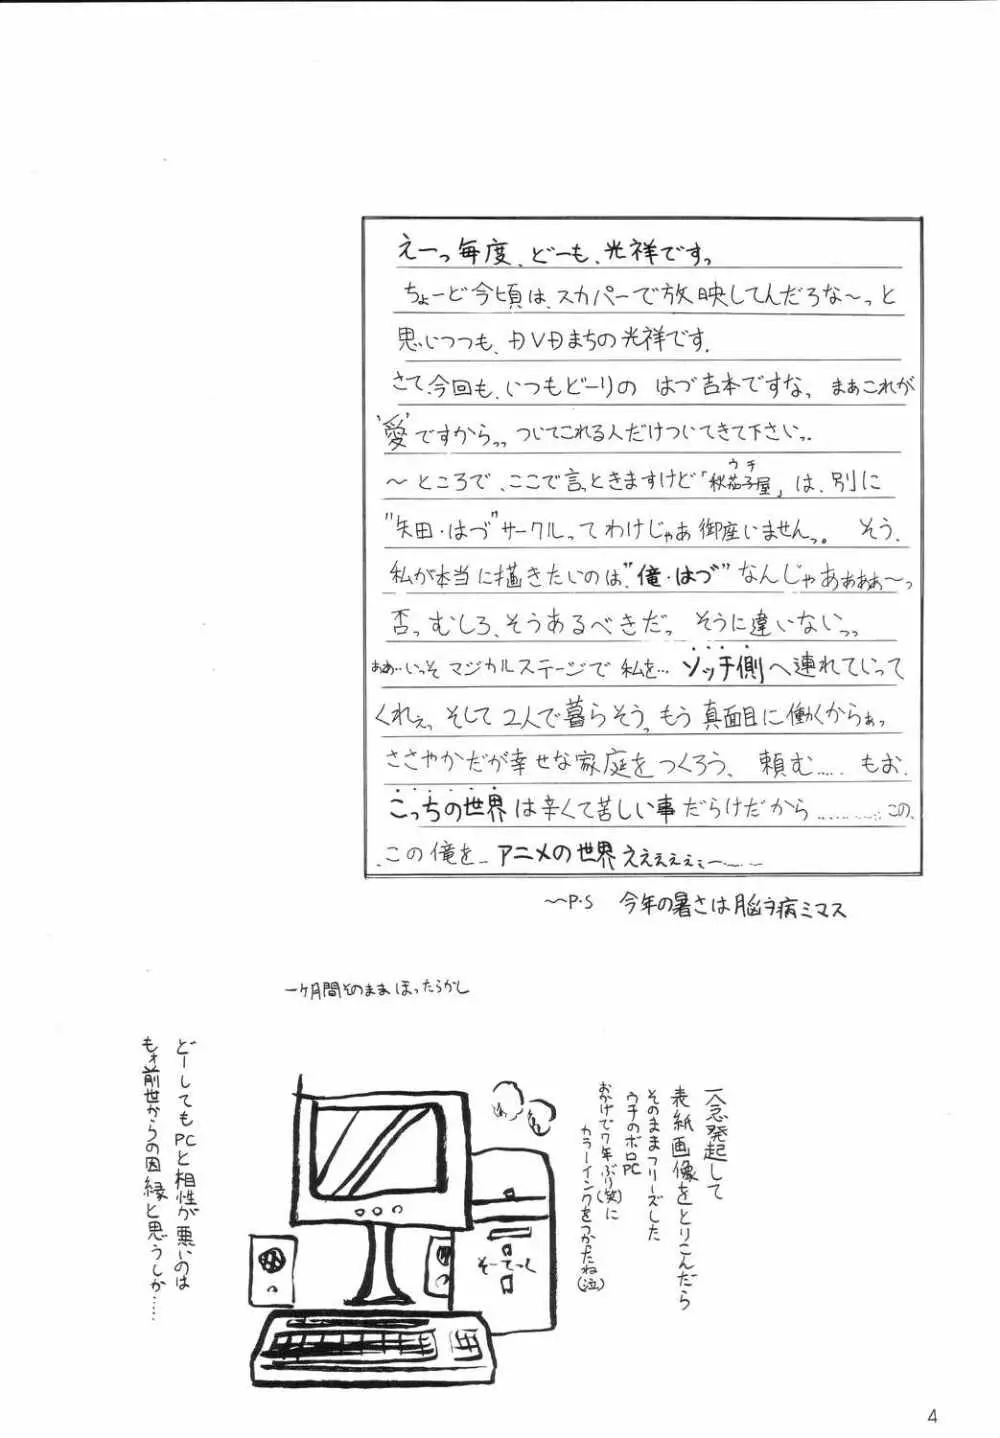 えーっ毎度、どーも、光祥ですっ
ちょーど今頃は、スカパーで放映してんだろな〜っと
思いつつも、DVDまちの光祥です.
さて、今回も、いつもどーりの はづ吉本ですなっ まあこれが
"愛"ですからっっ ついてこれる人だけついてきて下さいっ.
〜ところで、ここで言っときますけど「秋茄子屋」は、別に
ウチ
"矢田・はづ"サークルってわけじゃあ御座いませんっ。 そう、
私が本当に描きたいのは"俺・はづ"なんじゃあぁぁぁ〜っ
否っむしろ、そうあるべきだっ そうに違いないっっ
ああ…いっそ マジカルステージで 私を… ソッチ側へ連れていって
くれぇ、そして2人で暮らそうっもう真面目に働くからぁっ
ささやかだが幸せな家庭をつくろう、 頼む…… もお、
こっちの世界は辛くて苦しい事だらけだから………… この、
この俺を… アニメの世界へぇぇぇぇー……
〜〜P.S 今年の暑さは脳ヲ病ミマス
一ヶ月間そのままほったらかし
一念発起して
表紙画像をとりこんだら
そのままフリーズした
ウチのボロPC
おかげで7年ぶり(笑)に
カラーインクをつかったね(泣)
そーてっく
どーしてもPCと相性が悪いのは
もォ前世からの因縁と思うしか……
4